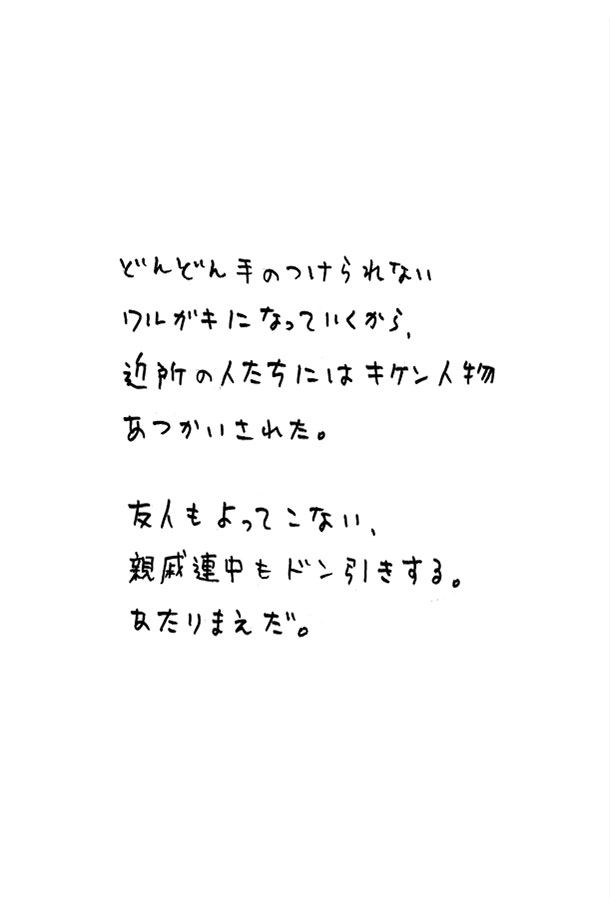 どんどん手のつけられない
ワルガキになっていくから、
近所の人たちにはキケン人物
あつかいされた。
友人もよってこない、
親戚連中もドン引きする。
あたりまえだ。